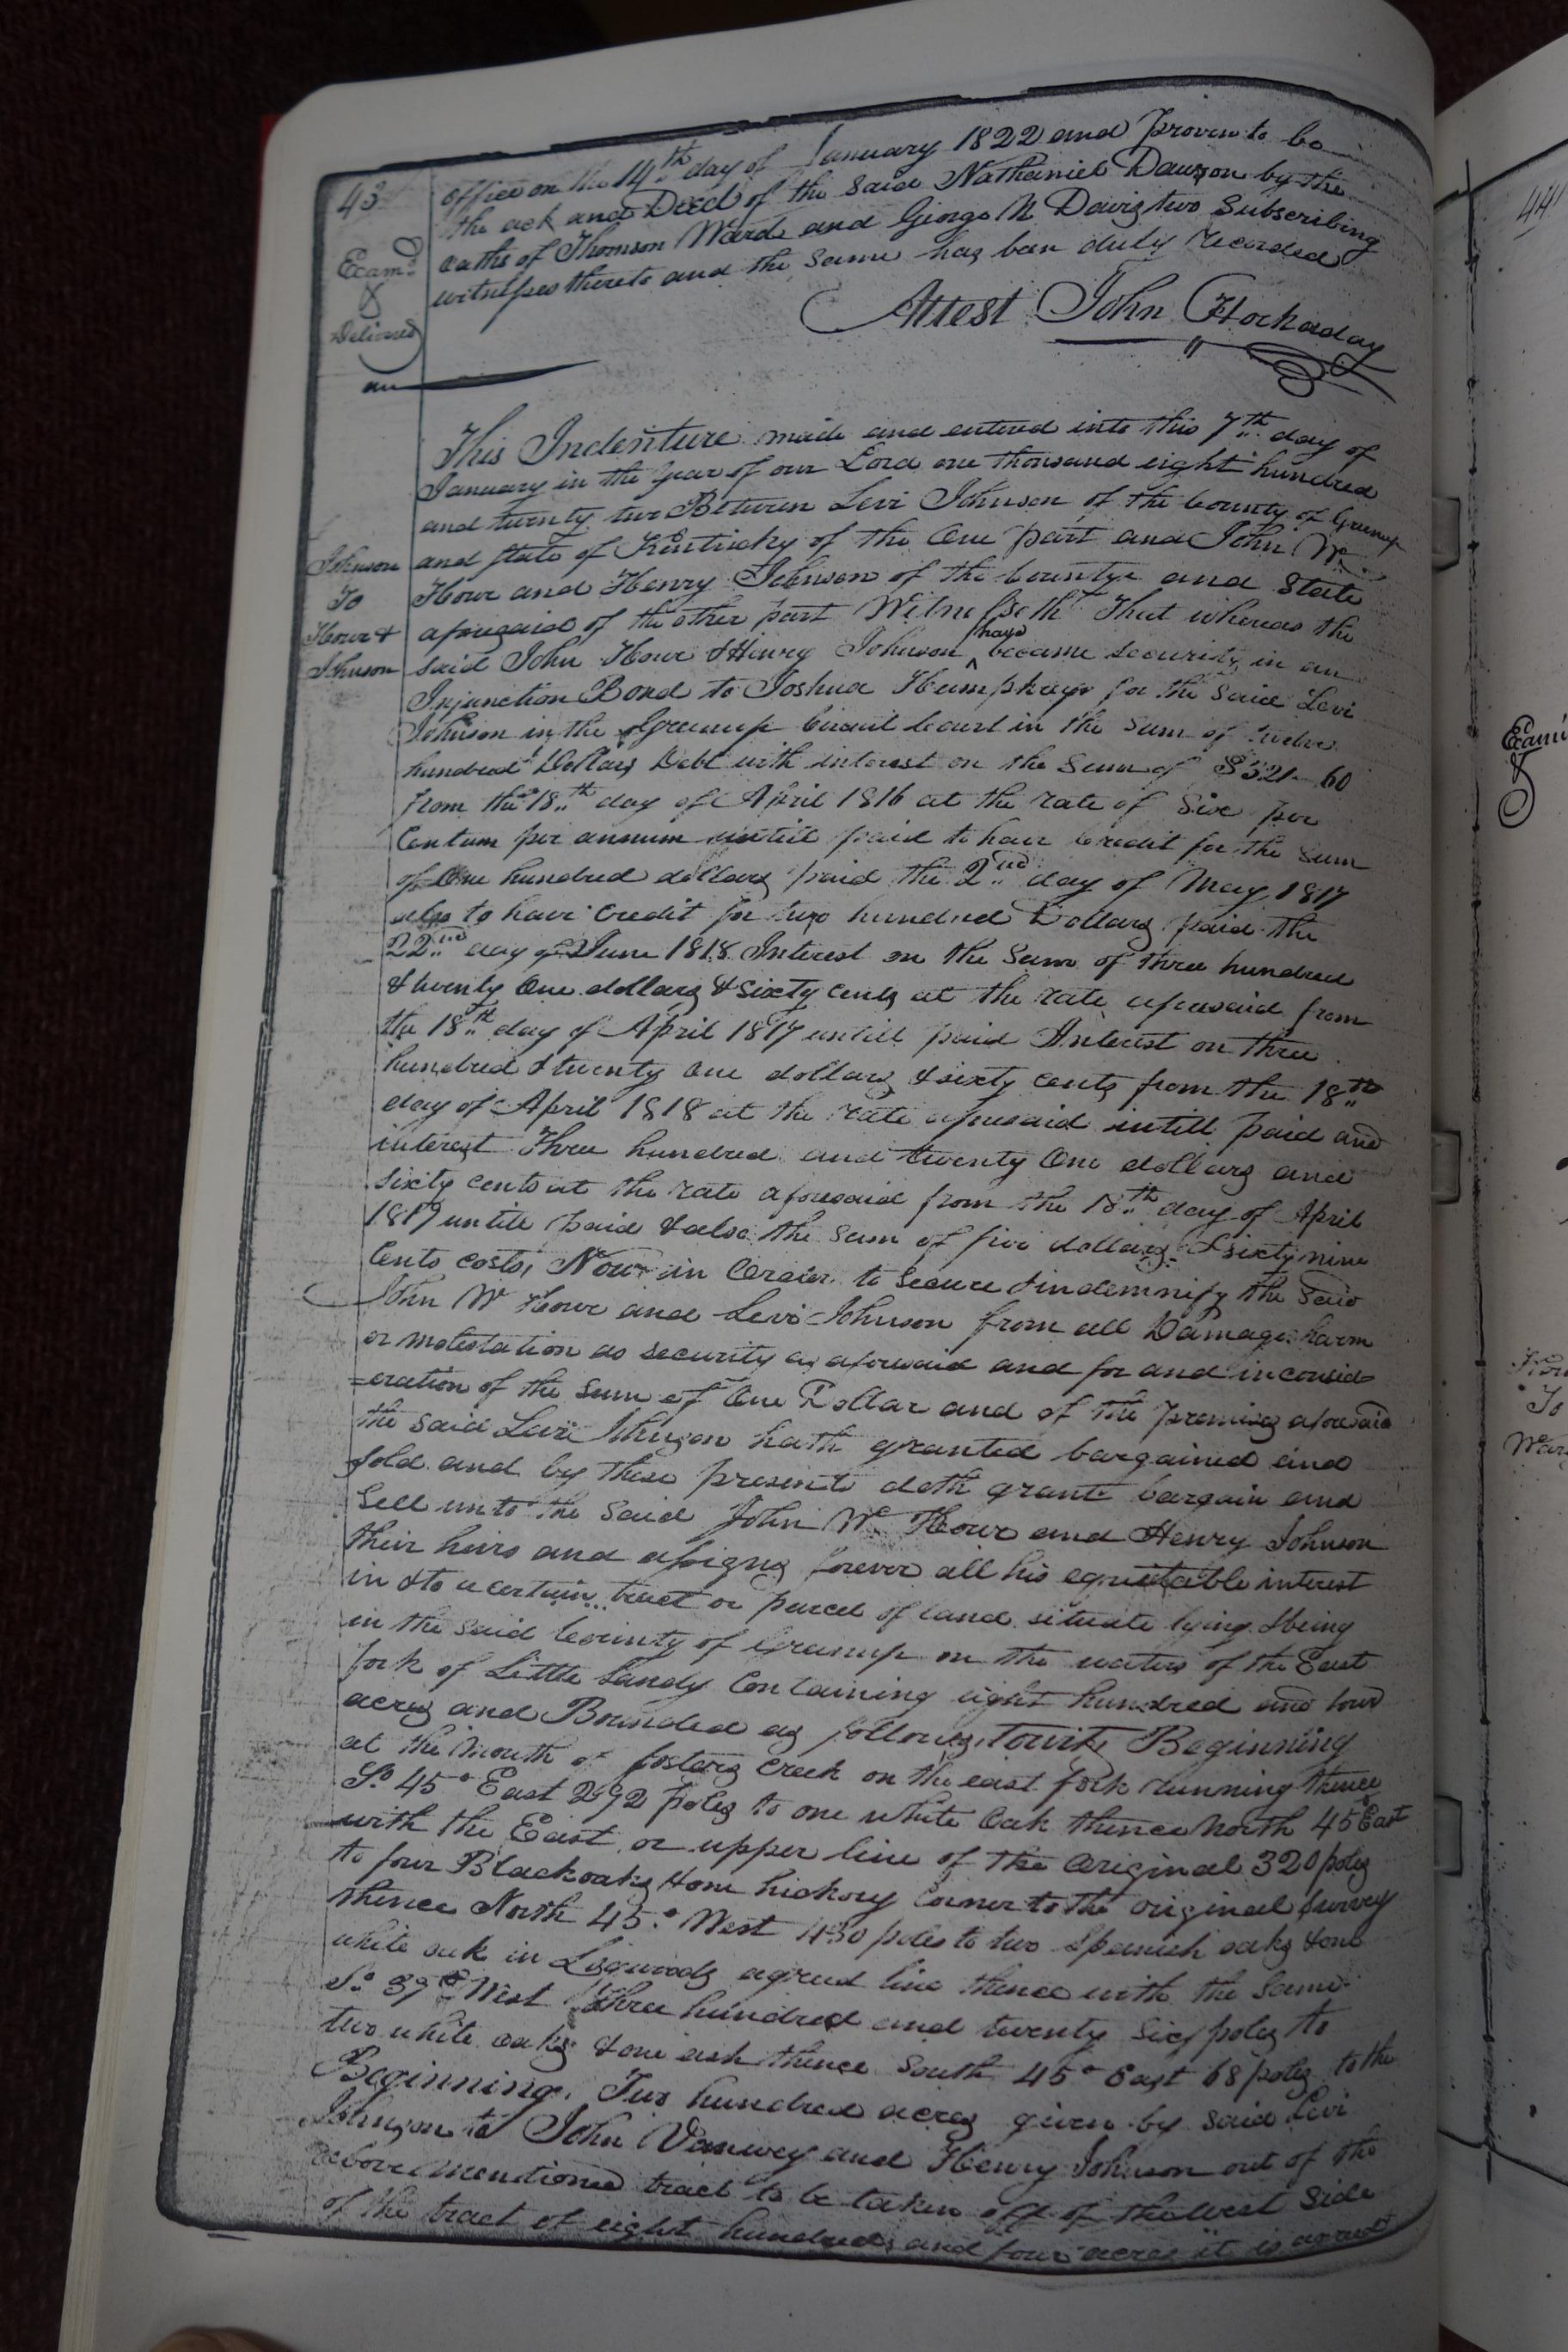 43
office on the 14th day of January 1822 and proven to be
the ack and Deed of the said Nathaniel Dawson by the
oaths of Thomson Ward and George N Davis two Subscribing
witnesses thereto and the same has been duly recorded
Attest John Hockaday
Examd
&
Delivered
This Indenture made and entered into this 7th day of
January in the year of our Lord one thousand eight hundred
and twenty two Between Levi Johnson of the County of Greenup
and State of Kentucky of the One part and John W
Howe and Henry Johnson of the County and State
aforesaid of the other part Witnesseth That whereas the
said John Howe & Henry Johnson have became security in an
Injunction Bond to Joshua Humphreys for the said Levi
Johnson in the Greenup Circuit Court in the sum of twelve
hundred Dollars Debt with interest on the sum of $321.60
from the 18th day of April 1816 at the rate of Six per
Centum per annum untill paid to have Credit for the sum
of One hundred dollars paid the 2nd day of May 1817
also to have Credit for two hundred Dollars paid the
22nd day of June 1818 Interest on the Sum of three hundred
& twenty One dollars & sixty cents at the rate aforesaid from
the 18th day of April 1817 untill paid Interest on three
hundred & twenty One dollars & sixty cents from the 18th
day of April 1818 at the rate aforesaid untill paid and
interest Three hundred and twenty One dollars and
sixty cents at the rate aforesaid from the 18th day of April
1819 untill paid & also the sum of five dollars & sixty nine
Cents costs, Now in Order to secure & indemnify the said
John W Howe and Levi Johnson from all Damage harm
or molestation as security as aforesaid and for and in consid=
=eration of the sum of One Dollar and of the premises aforesaid
the said Levi Johnson hath granted bargained and
sold and by these presents doth grant bargain and
Sell unto the said John W Howe and Henry Johnson
their heirs and assigns forever all his equitable interest
in & to a certain tract or parcel of land situate lying & being
in the said County of Greenup on the waters of the East
fork of Little Sandy Containing eight hundred and four
acres and Bounded as follows, towit, Beginning
at the mouth of fosters Creek on the east fork running thence
So 45° East 292 poles to one white Oak thence North 45 East
with the East or upper line of the Original 320 poles
to four Black oaks & one hickory Corner to the original survey
thence North 45° West 430 poles to two Spanish oaks & one
white oak in agreed line thence with the same
So 37° West Three hundred and twenty Six poles to
two white oaks & one ash thence South 45° East 68 poles to the
Beginning. Two hundred acres given by said Levi
Johnson to John and Henry Johnson out of the
above mentioned tract to be taken off of the West Side
of the tract of eight hundred and four acres it is agreed
Johnson
To
Howe &
Johnson
44
To